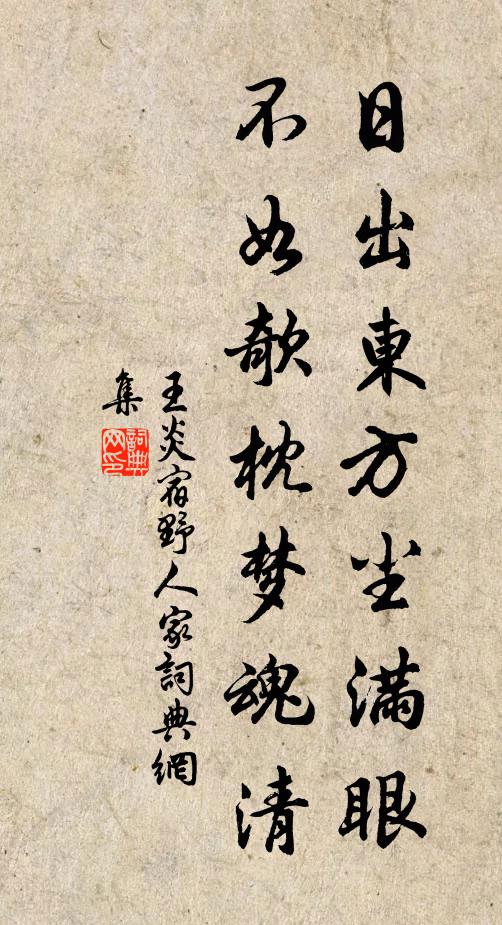 日出東方尘滿眼
不如欹枕梦魂清
王炎宿野人家詞典網
集
詞典
网印